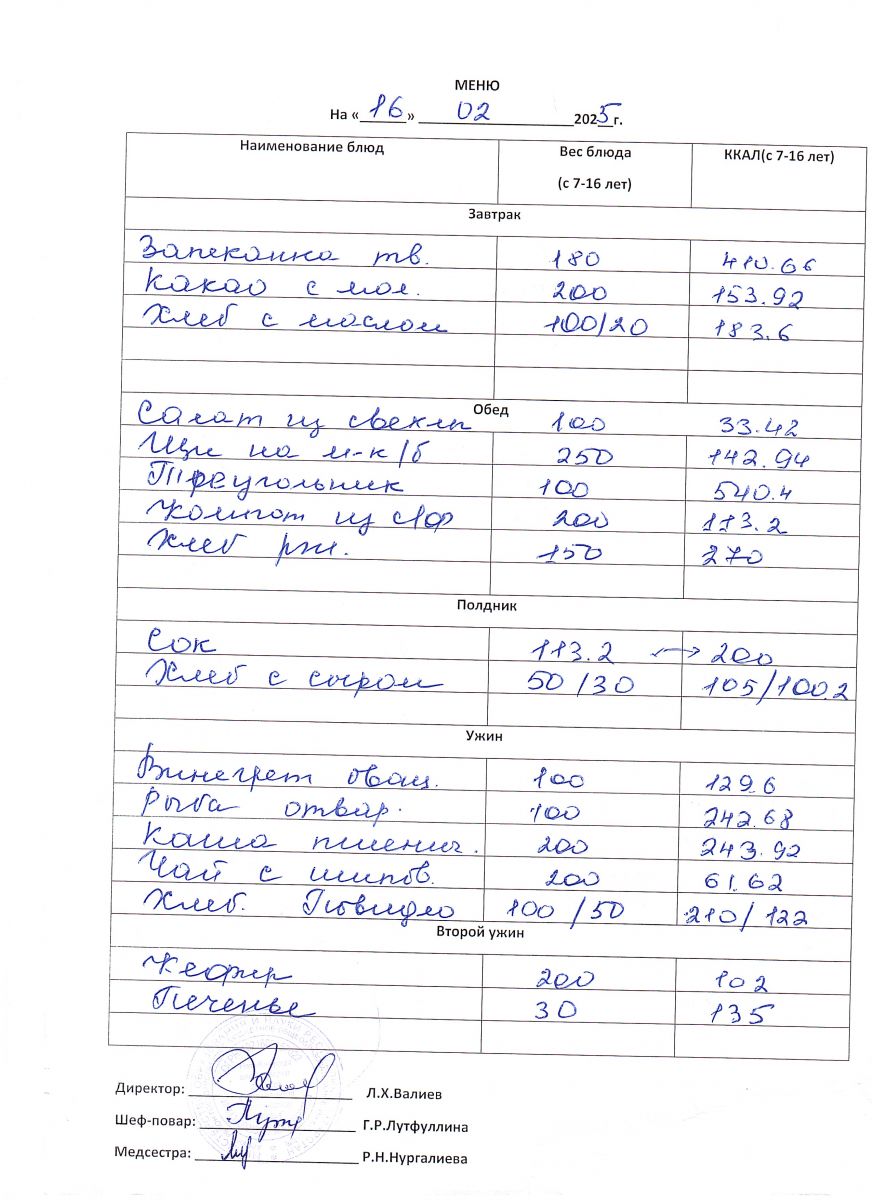 МЕНЮ
На «16» 02 2025 г.
Наименование блюд Вес блюда (с 7-16 лет) ККАЛ(с 7-16 лет)
Завтрак
Запеканка тв. 180 410.66
Какао с мол. 200 153.92
Хлеб с маслом 100/20 183.6
Обед
Салат из свеклы 100 33.42
Щи на м-к/б 250 142.94
Треугольник 100 540.4
Компот из с/ф 200 113.2
Хлеб рж. 150 270
Полдник
Сок 113.2 ↔ 200
Хлеб с сыром 50/30 105/100.2
Ужин
Винегрет овощ. 100 129.6
Рыба отвар. 100 242.68
Каша пшенич. 200 243.92
Чай с шипов. 200 61.62
Хлеб. Повидло 100/50 210/122
Второй ужин
Кефир 200 102
Печенье 30 135
Директор: Л.Х.Валиев
Шеф-повар: Г.Р.Лутфуллина
Медсестра: Р.Н.Нургалиева